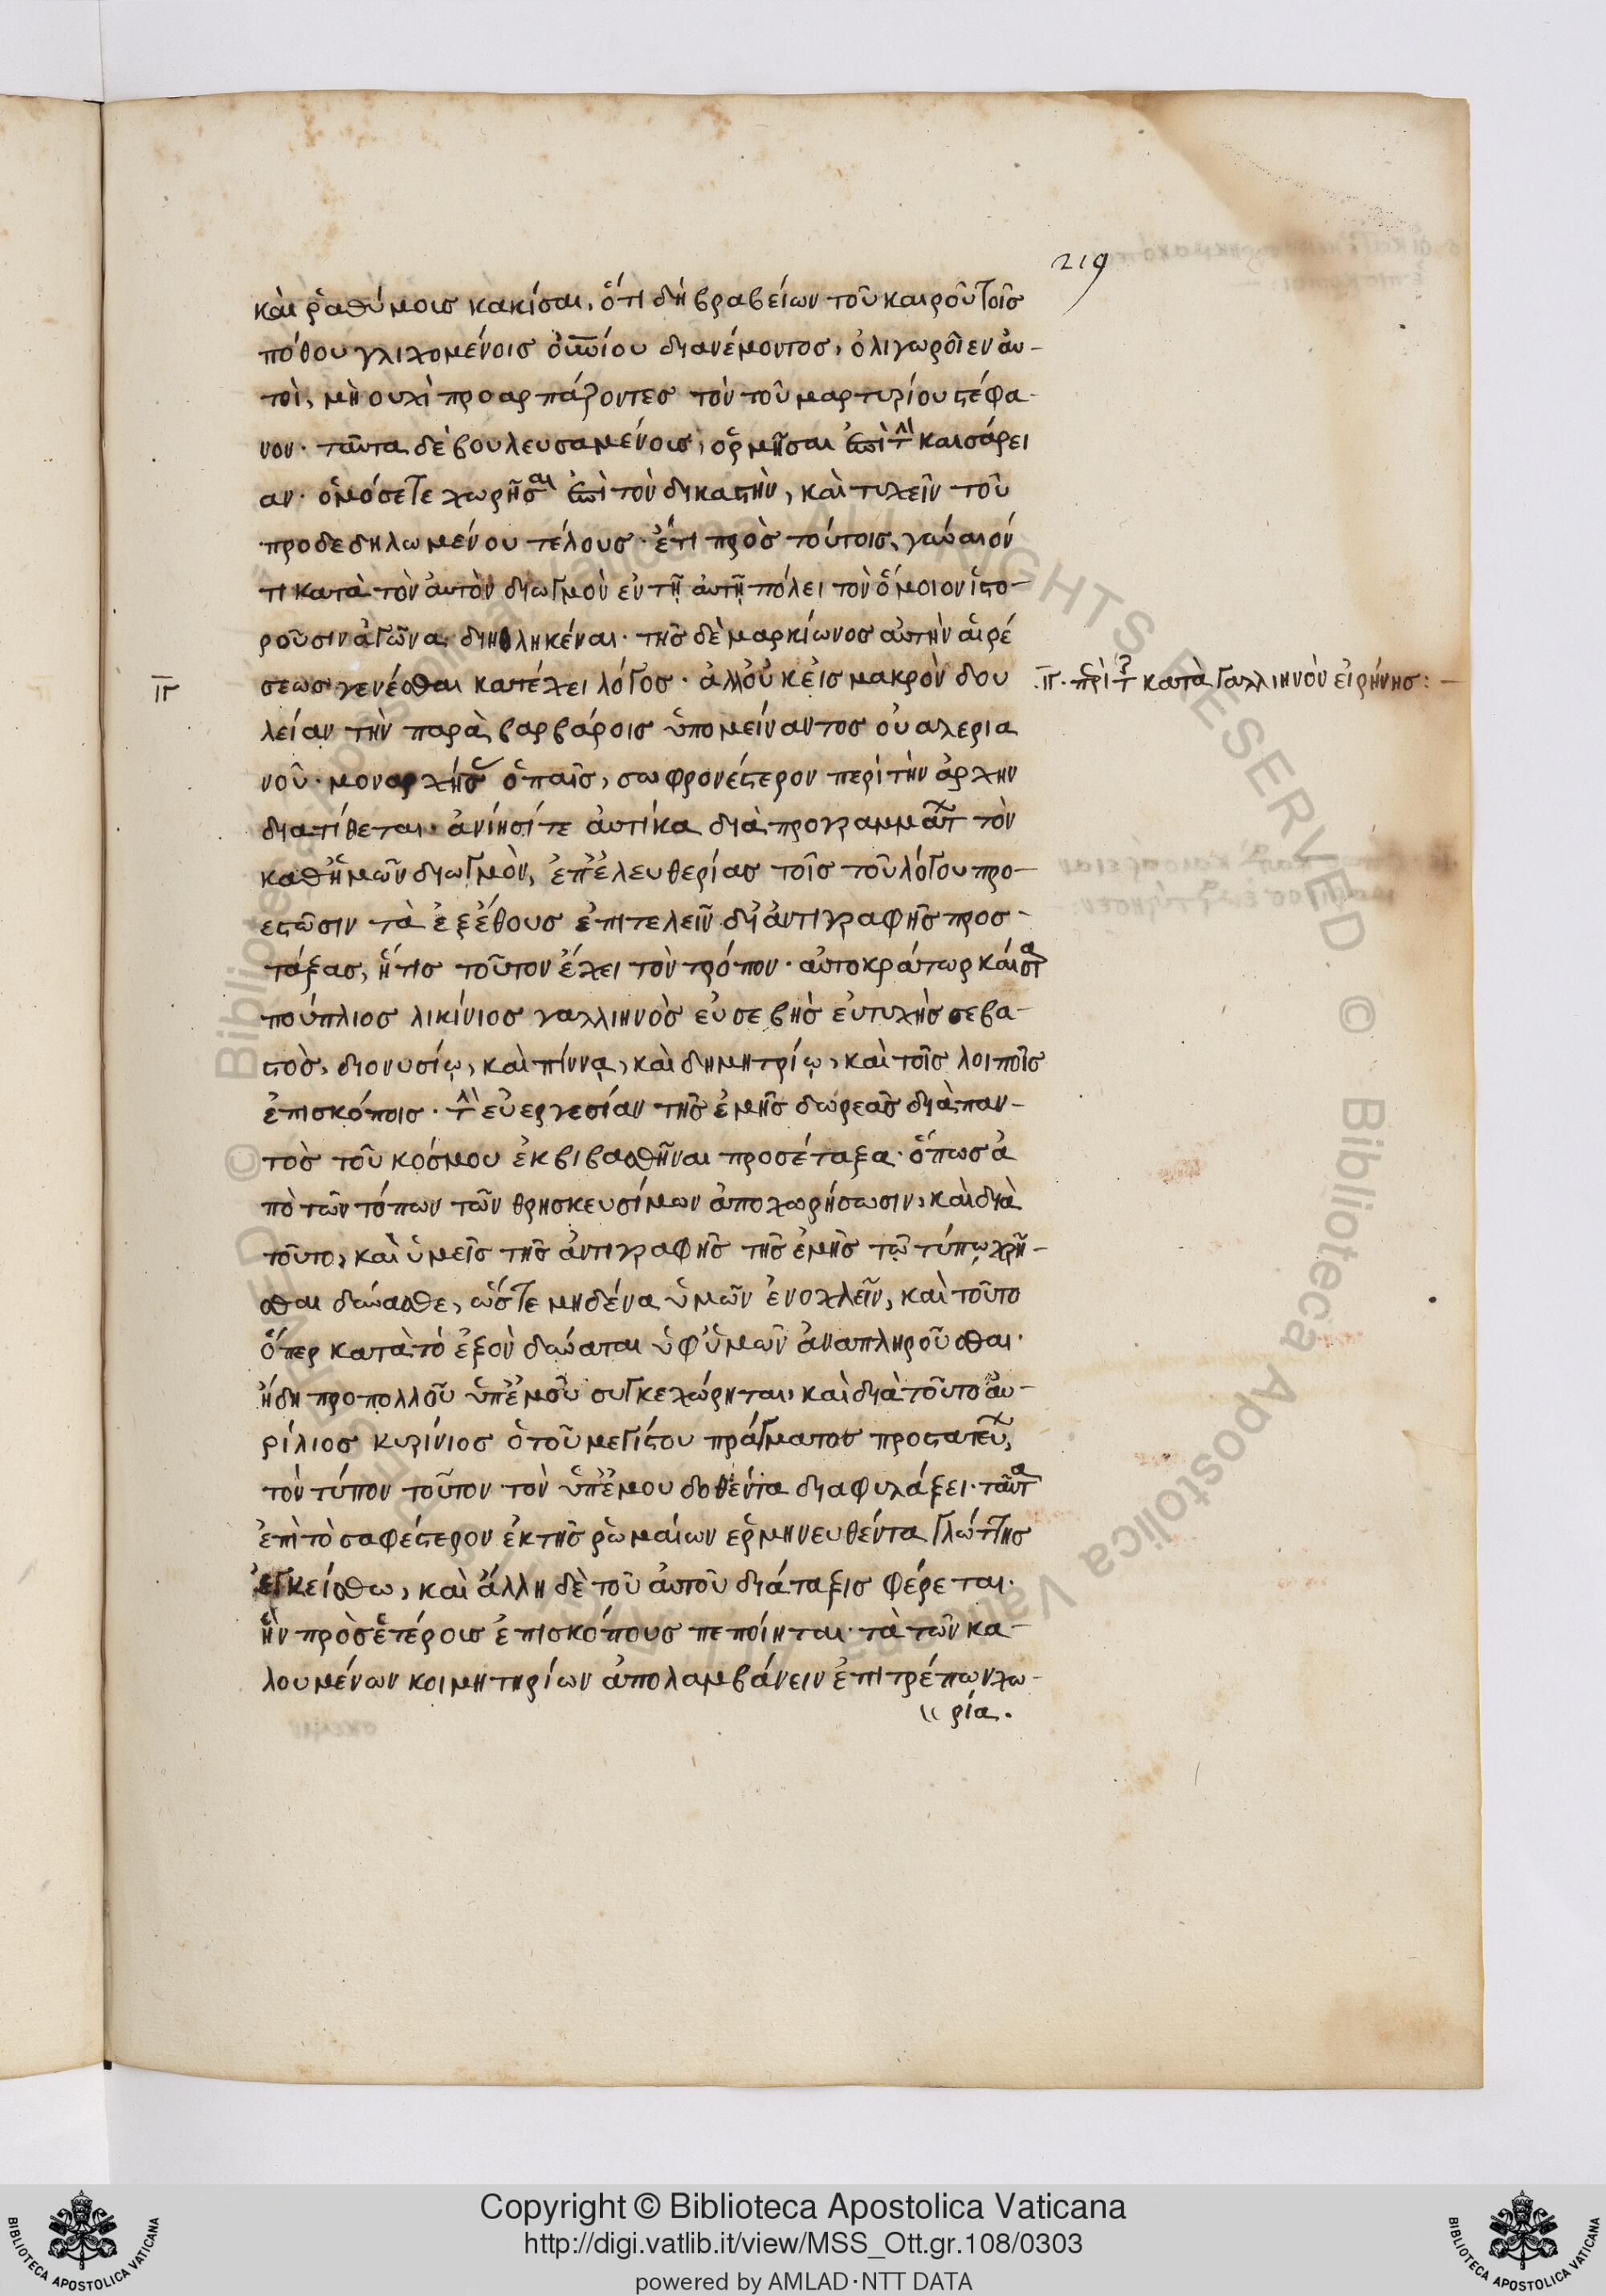 219
καὶ ῥαθύμοις κακίσαι, ὅτι δὴ βραβείων τοῦ καιροῦ τοῖς
πόθου γλιχομένοις οὐνίου διανέμοντος, ὀλιγωροῖεν αὐ-
τοὶ, μὴ ουχὶ προαρπάζοντες τὸν τοῦ μαρτυρίου στέφα-
νον· ταῦτα δὲ βουλευσαμένοις, ὁρμῆσαι ἐπὶ τὴν καισάρει
αν· ὁμόσε τε χωρῆσαι ἐπὶ τὸν δικαστὴν, καὶ τυχεῖν τοῦ
προδεδηλωμένου τέλους· ἔτι πρὸς τούτοις, γύναιόν
τι κατὰ τὸν ἀυτὸν διωγμὸν εν τῇ ἀυτῇ πόλει τὸν ὅμοιον ἱστο-
ροῦσιν ἀγῶνα διηθληκέναι· τῆς δὲ μαρκίωνος αὐτὴν αἱρέ
σεως γενέσθαι κατέχει λόγος· ἀλλ' οὐκ εἰς μακρὸν δου
λείαν τὴν παρὰ βαρβάροις ὑπομείναντος οὐαλερια
νοῦ· μοναρχήσας ὁ παῖς, σωφρονέστερον περὶ τὴν ἀρχην
διατίθεται· ἀνίησί τε ἀυτίκα διὰ προγραμμάτων τὸν
καθ' ἡμῶν διωγμὸν, ἐπ' ἐλευθερίας τοῖς τοῦ λόγου προ-
εστῶσιν τὰ ἐξ ἔθους ἐπιτελεῖν δι' ἀντιγραφῆς προσ-
τάξας, ἥτις τοῦτον ἔχει τὸν τρόπον· αὐτοκράτωρ καίσαρ
πούπλιος λικίνιος γαλλιηνὸς εὐσεβὴς εὐτυχὴς σεβα-
στὸς, διονυσίῳ, καὶ πίννᾳ, καὶ δημητρίῳ, καὶ τοῖς λοιποῖς
ἐπισκόποις· τὴν εὐεργεσίαν τῆς ἐμῆς δωρεᾶς διὰ παν-
τὸς τοῦ κόσμου ἐκβιβασθῆναι προσέταξα· ὅπως ἀ
πὸ τῶν τόπων τῶν θρησκευσίμων ἀποχωρήσωσιν, καὶ διὰ
τοῦτο, καὶ ὑμεῖς τῆς ἀντιγραφῆς τῆς ἐμῆς τῷ τύπῳ χρῆ-
σθαι δύνασθε, ὥστε μηδένα ὑμῶν ἐνοχλεῖν, καὶ τοῦτο
ὅπερ κατὰ τὸ ἐξὸν δύναται ὑφ' ὑμῶν ἀναπληροῦσθαι·
ἤδη προπολλοῦ ὑπ' ἐμοῦ συγκεχώρηται, καὶ διὰ τοῦτο αὐ-
ρίλιος κυρίνιος ὁ τοῦ μεγίστου πράγματος προστατεύων,
τὸν τύπον τοῦτον τὸν ὑπ' ἐμου δοθέντα διαφυλάξει· ταῦτα
ἐπὶ τὸ σαφέστερον ἐκ τῆς ῥωμαίων ἑρμηνευθέντα γλώττης
ἐγκείσθω, καὶ ἄλλη δὲ τοῦ αὐτοῦ διάταξις φέρεται·
ἣν πρὸς ἑτέροις ἐπισκόπους πεποίηται· τὰ τῶν κα-
λουμένων κοιμητηρίων ἀπολαμβάνειν ἐπιτρέπων χω-
ρία.
ΙΓ
ΙΓ· περὶ τῆς κατὰ Γαλλιηνὸν εἰρήνης: —
Copyright © Biblioteca Apostolica Vaticana
http://digi.vatlib.it/view/MSS_Ott.gr.108/0303
powered by AMLAD·NTT DATA
BIBLIOTECA APOSTOLICA VATICANA
BIBLIOTECA APOSTOLICA VATICANA